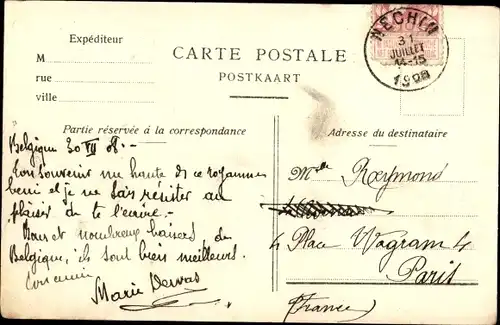 Expéditeur
M
rue
ville
CARTE POSTALE
POSTKAART
NECHIN
31
JUILLET
14-15
1908
Partie réservée à la correspondance
Adresse du destinataire
Belgique 30 VII 08.-
Ton souvenir me hante de ce royaume
beni et je ne sais résister au
plaisir de te l'écrire.-
Bons et nombreux baisers de
Belgique, ils sont bien meilleurs.
Ton amie
Marie
Mlle Reymond
4 Place Wagram 4
Paris
(France)